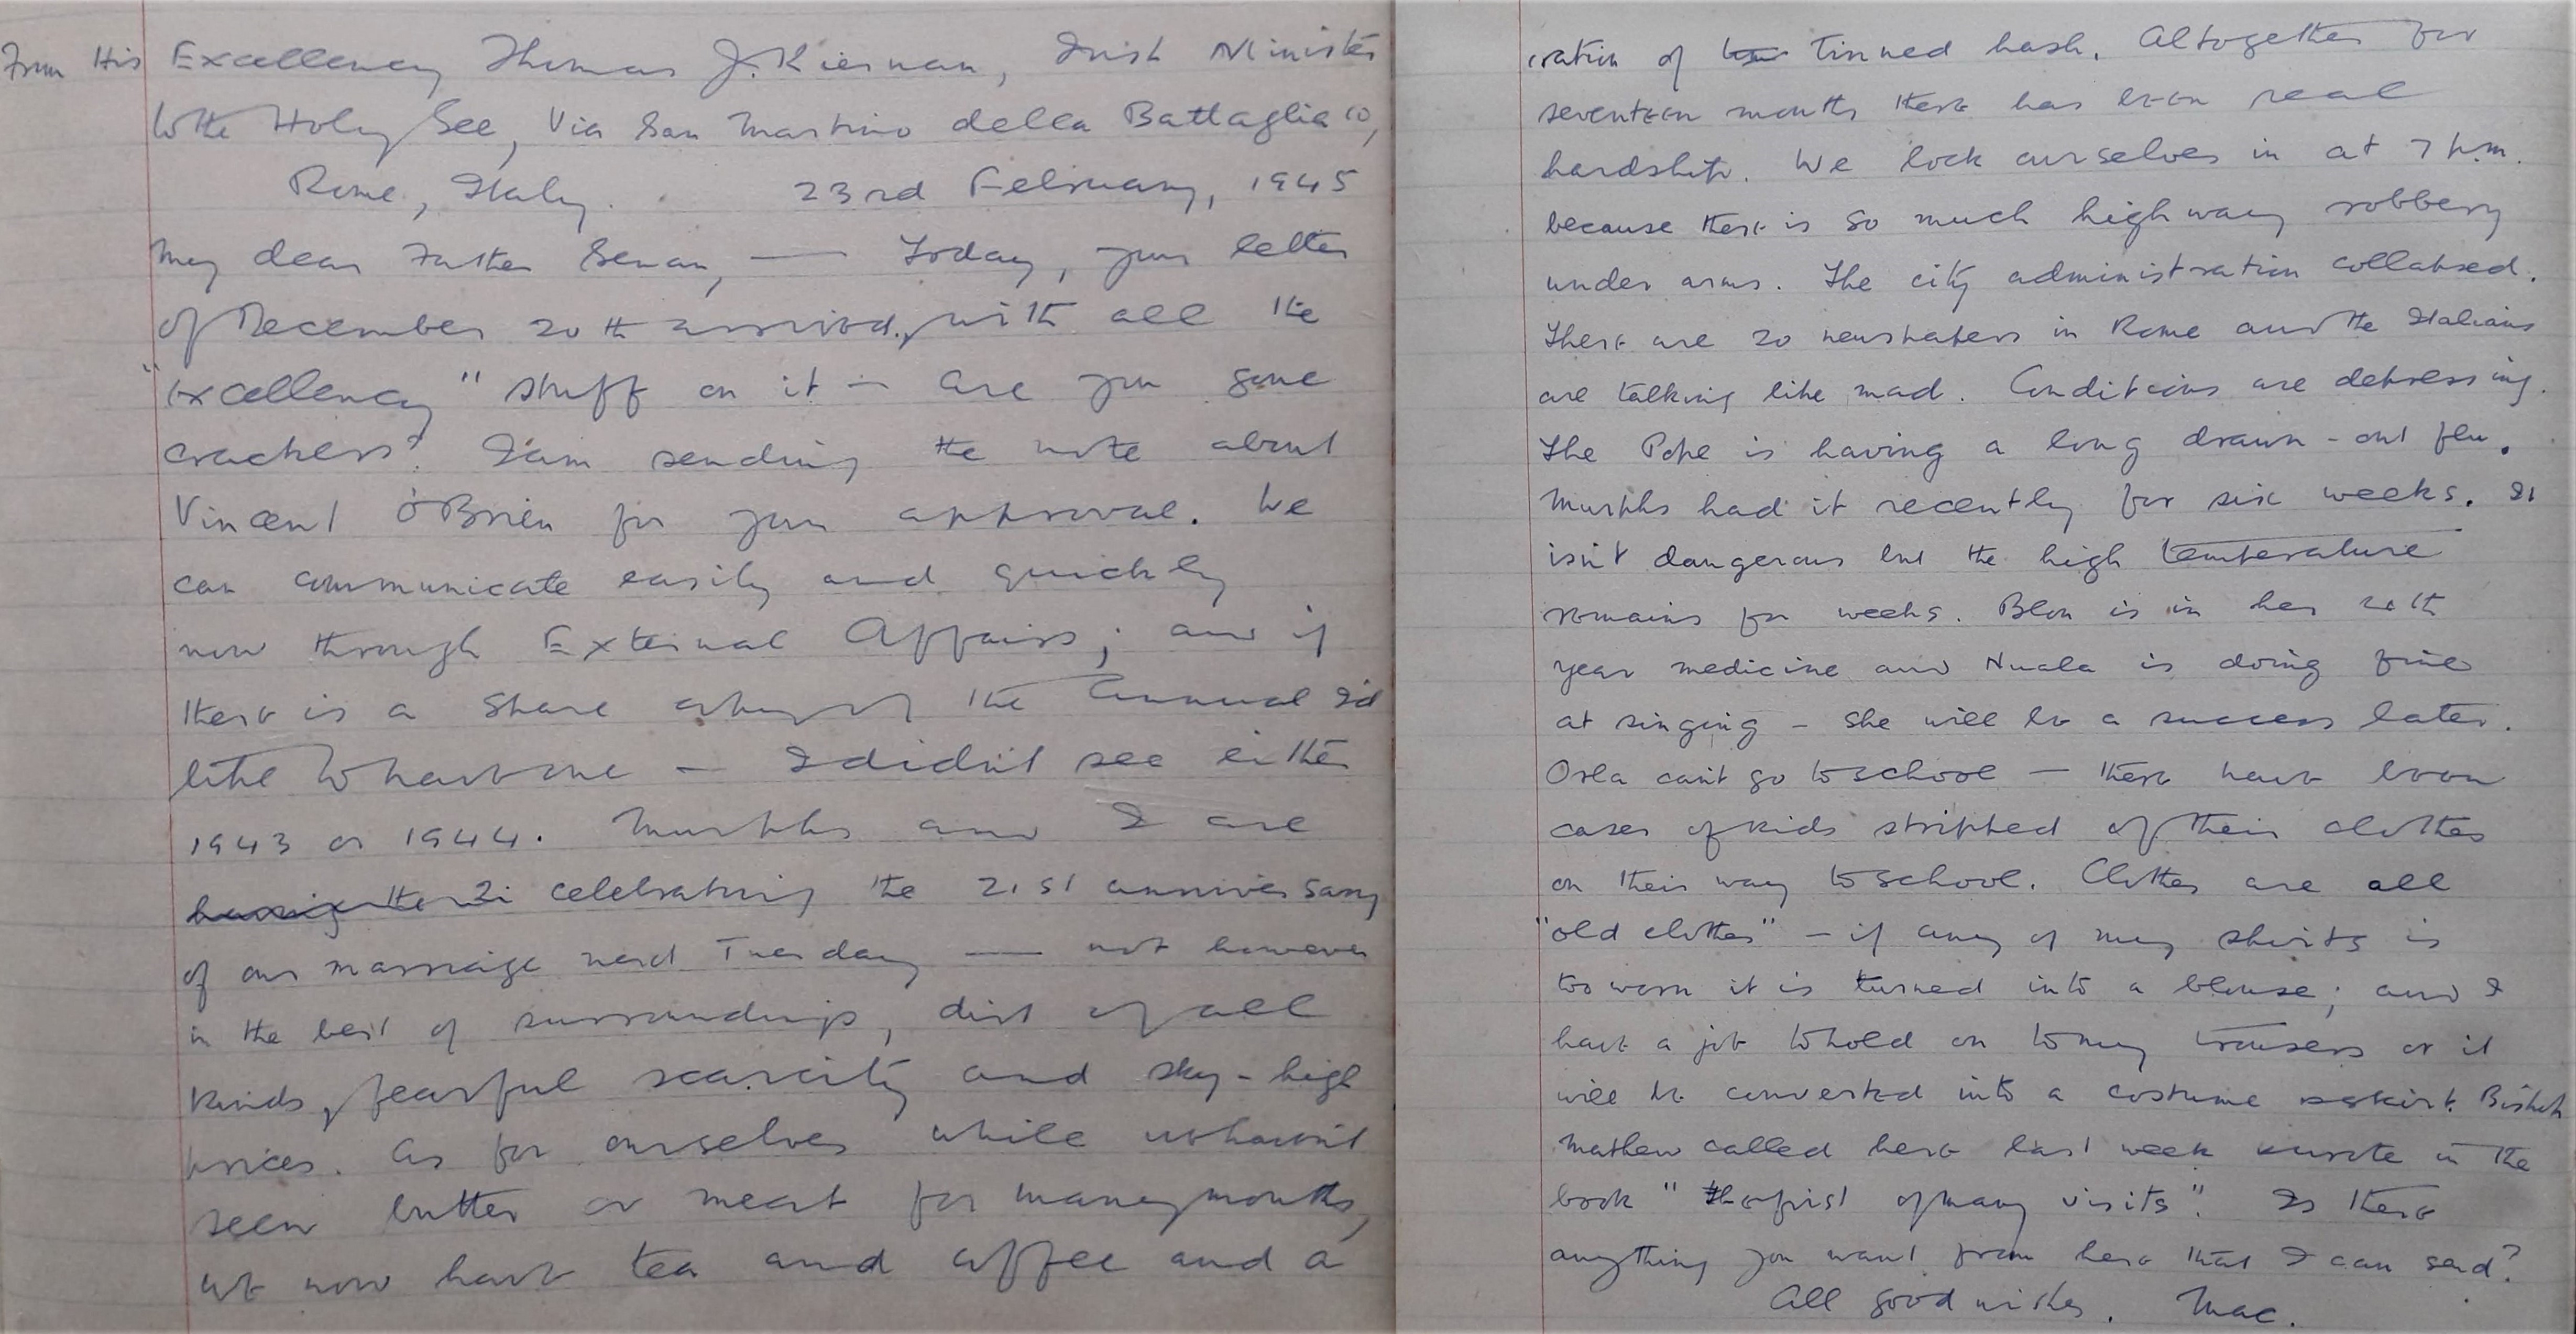 From His Excellency Thomas J. Kiernan, Irish Minister
to the Holy See, Via San Martino della Battaglia 10,
Rome, Italy. 23rd February, 1945
My dear Father Senan, — Today, your letter
of December 20th arrived, with all the
"Excellency" stuff on it — are you gone
crackers? I am sending the note about
Vincent O'Brien for your approval. We
can communicate easily and quickly
now through External Affairs; and if
there is a spare copy of the Annual I'd
like to have one — I didn't see either
1943 or 1944. Murphs and I are
celebrating the 21st anniversary
of our marriage next Tuesday — not however
in the best of surroundings, dirt of all
kinds, fearful scarcity and sky-high
prices. As for ourselves while we haven't
seen butter or meat for many months,
we now have tea and coffee and a
ration of tinned hash. Altogether for
seventeen months there has been real
hardship. We lock ourselves in at 7 p.m.
because there is so much highway robbery
under arms. The city administration collapsed.
There are 20 newspapers in Rome and the Italians
are talking like mad. Conditions are depressing.
The Pope is having a long drawn-out flu.
Murphs had it recently for six weeks. It
isn't dangerous but the high temperature
remains for weeks. Blon is in her
year medicine and Nuala is doing fine
at singing — she will be a success later.
Orla can't go to school — there have been
cases of kids stripped of their clothes
on their way to school. Clothes are all
"old clothes" — if any of my shirts is
too worn it is turned into a blouse; and I
have a job to hold on to my trousers or it
will be converted into a costume skirt. Bishop
Mathew called here last week & wrote in the
book "the first of many visits". Is there
anything you want from here that I can send?
All good wishes. Mac.